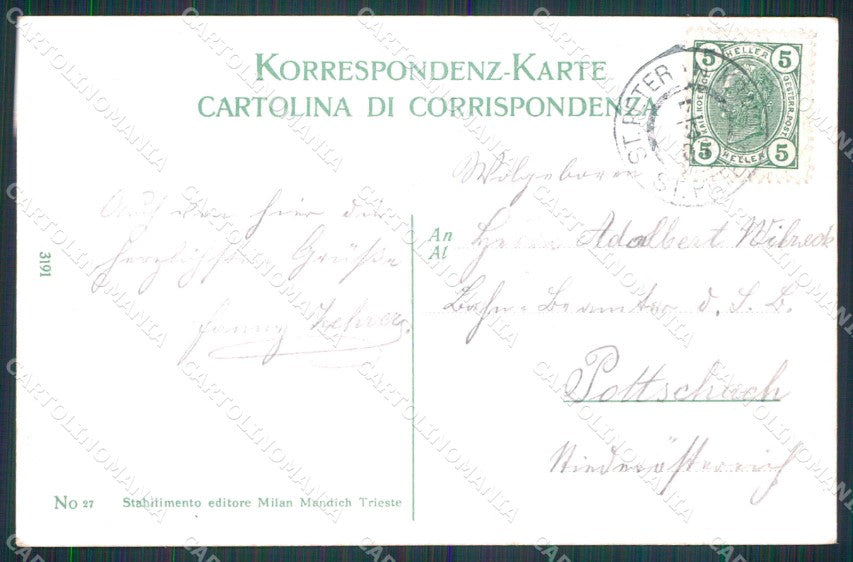 KORRESPONDENZ-KARTE
CARTOLINA DI CORRISPONDENZA
5 HELLER 5
KAIS. KOENIGL. OESTERR. POST
5 HELLER 5
ST. PETER
ST. P
Wolgeboren
An Herrn Adalbert
Al
Bahn-Beamter d. S. B.
Pottschach
Niederösterreich
Auch von hier die
herzlichsten Grüße
Fanny
3191
No 27 Stabilimento editore Milan Mandich Trieste
CARTOLINOMANIA